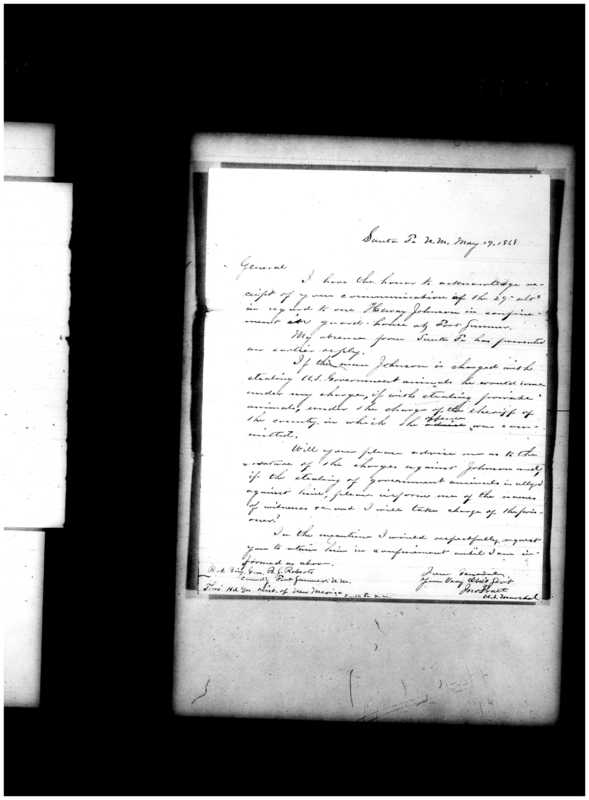 Santa Fe N.M. May 19, 1868
General
I have the honor to acknowledge re-
ceipt of your communication of the 29" ulto
in regard to one Henry Johnson in confine-
ment in guard-house at Fort Sumner.
My absence from Santa Fe has prevented
an earlier reply.
If the man Johnson is charged with
stealing U.S. Government animals he would come
under my charge, if with stealing private
animals, under the charge of the Sheriff of
the county in which the offense was com-
mitted.
Will you please advise me as to the
nature of the charges against Johnson and
if the stealing of government animals is alleged
against him, please inform me of the names
of witnesses and I will take charge of the pris-
oner.
In the meantime I would respectfully request
you to retain him in confinement until I am in-
formed as above.
Gen. B. S. Roberts
Comdg Fort Sumner N.M.
Thro' Hd Qrs Dist. of New Mexico
Your Very Obt Servt
Jno Pratt
U.S. Marshal